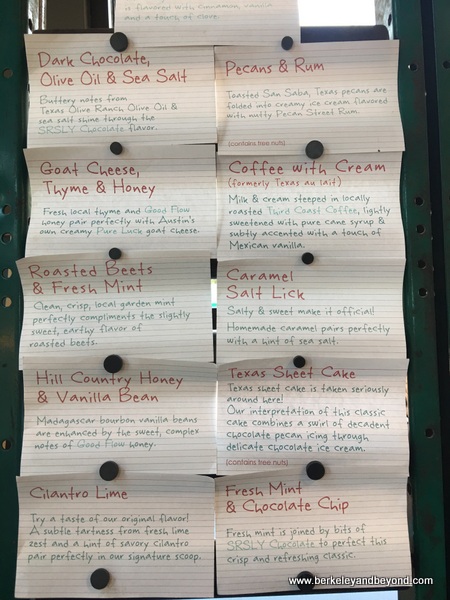 is flavored with cinnamon, vanilla
and a touch of clove.
Dark Chocolate,
Olive Oil & Sea Salt
Buttery notes from
Texas Olive Ranch Olive Oil &
sea salt shine through the
SRSLY Chocolate flavor.
Pecans & Rum
Toasted San Saba, Texas pecans are
folded into creamy ice cream flavored
with nutty Pecan Street Rum.
(contains tree nuts)
Goat Cheese,
Thyme & Honey
Fresh local thyme and Good Flow
honey pair perfectly with Austin's
own creamy Pure Luck goat cheese.
Coffee with Cream
(formerly Texas au lait)
Milk & cream steeped in locally
roasted Third Coast Coffee, lightly
sweetened with pure cane syrup &
subtly accented with a touch of
Mexican vanilla.
Roasted Beets
& Fresh Mint
Clean, crisp, local garden mint
perfectly compliments the slightly
sweet, earthy flavor of
roasted beets.
Caramel
Salt Lick
Salty & sweet make it official!
Homemade caramel pairs perfectly
with a hint of sea salt.
Hill Country Honey
& Vanilla Bean
Madagascar bourbon vanilla beans
are enhanced by the sweet, complex
notes of Good Flow honey.
Texas Sheet Cake
Texas sheet cake is taken seriously
around here!
Our interpretation of this classic
cake combines a swirl of decadent
chocolate pecan icing through
delicate chocolate ice cream.
(contains tree nuts)
Cilantro Lime
Try a taste of our original flavor!
A subtle tartness from fresh lime
zest and a hint of savory cilantro
pair perfectly in our signature scoop.
Fresh Mint
& Chocolate Chip
Fresh mint is joined by bits of
SRSLY Chocolate to perfect this
crisp and refreshing classic.
www.berkeleyandbeyond.com